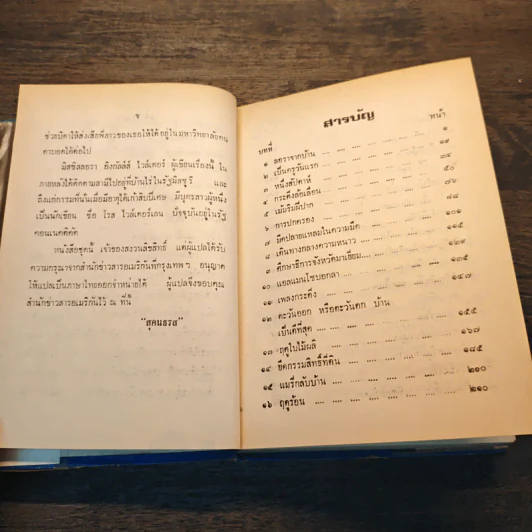 ข
ช่วยบิดาให้ส่งเสียพี่สาวของเธอให้ได้อยู่ในมหาวิทยาลัยคน
ตาบอดได้ต่อไป
มิสซิสลอรา อิงกัลล์ส์ ไวล์เดอร์ ผู้เขียนเรื่องนี้ ใน
ภายหลังได้ติดตามสามีไปอยู่ที่บ้านไร่ในรัฐมิสซูรี และ
ถึงแก่กรรมที่นั่นเมื่อมีอายุได้เก้าสิบปีเศษ มีบุตรสาวผู้หนึ่ง
เป็นนักเขียน ชื่อ โรส ไวล์เดอร์เลน ปัจจุบันอยู่ในรัฐ
คอนเนคติคัต
หนังสือชุดนี้ เจ้าของสงวนลิขสิทธิ์ แต่ผู้แปลได้รับ
ความกรุณาจากสำนักข่าวสารอเมริกันที่กรุงเทพฯ อนุญาต
ให้แปลเป็นภาษาไทยออกจำหน่ายได้ ผู้แปลจึงขอบคุณ
สำนักข่าวสารอเมริกันไว้ ณ ที่นี้
"สุคนธรส"
สารบัญ
บทที่ หน้า
๑ ลอราจากบ้าน .... ๑
๒ เป็นครูวันแรก .... ๑๙
๓ หนึ่งสัปดาห์ .... ๓๔
๔ กระดิ่งล้อเลื่อน .... ๕๐
๕ เม้มริมฝีปาก .... ๗๖
๖ การปกครอง .... ๘๘
๗ มีดปลายแหลมในความมืด .... ๑๐๑
๘ เดินทางกลางความหนาว .... ๑๑๕
๙ ศึกษาธิการจังหวัดมาเยี่ยม.... ๑๒๙
๑๐ แอลแมนโซบอกลา .... ๑๓๕
๑๑ เพลงกระดิ่ง .... ๑๔๗
๑๒ ตะวันออก หรือตะวันตก บ้าน
เป็นดีที่สุด .... ๑๕๕
๑๓ ฤดูใบไม้ผลิ .... ๑๖๗
๑๔ ยึดกรรมสิทธิ์ที่ดิน .... ๑๘๕
๑๕ แมรี่กลับบ้าน .... ๒๑๐
๑๖ ฤดูร้อน .... ๒๑๐